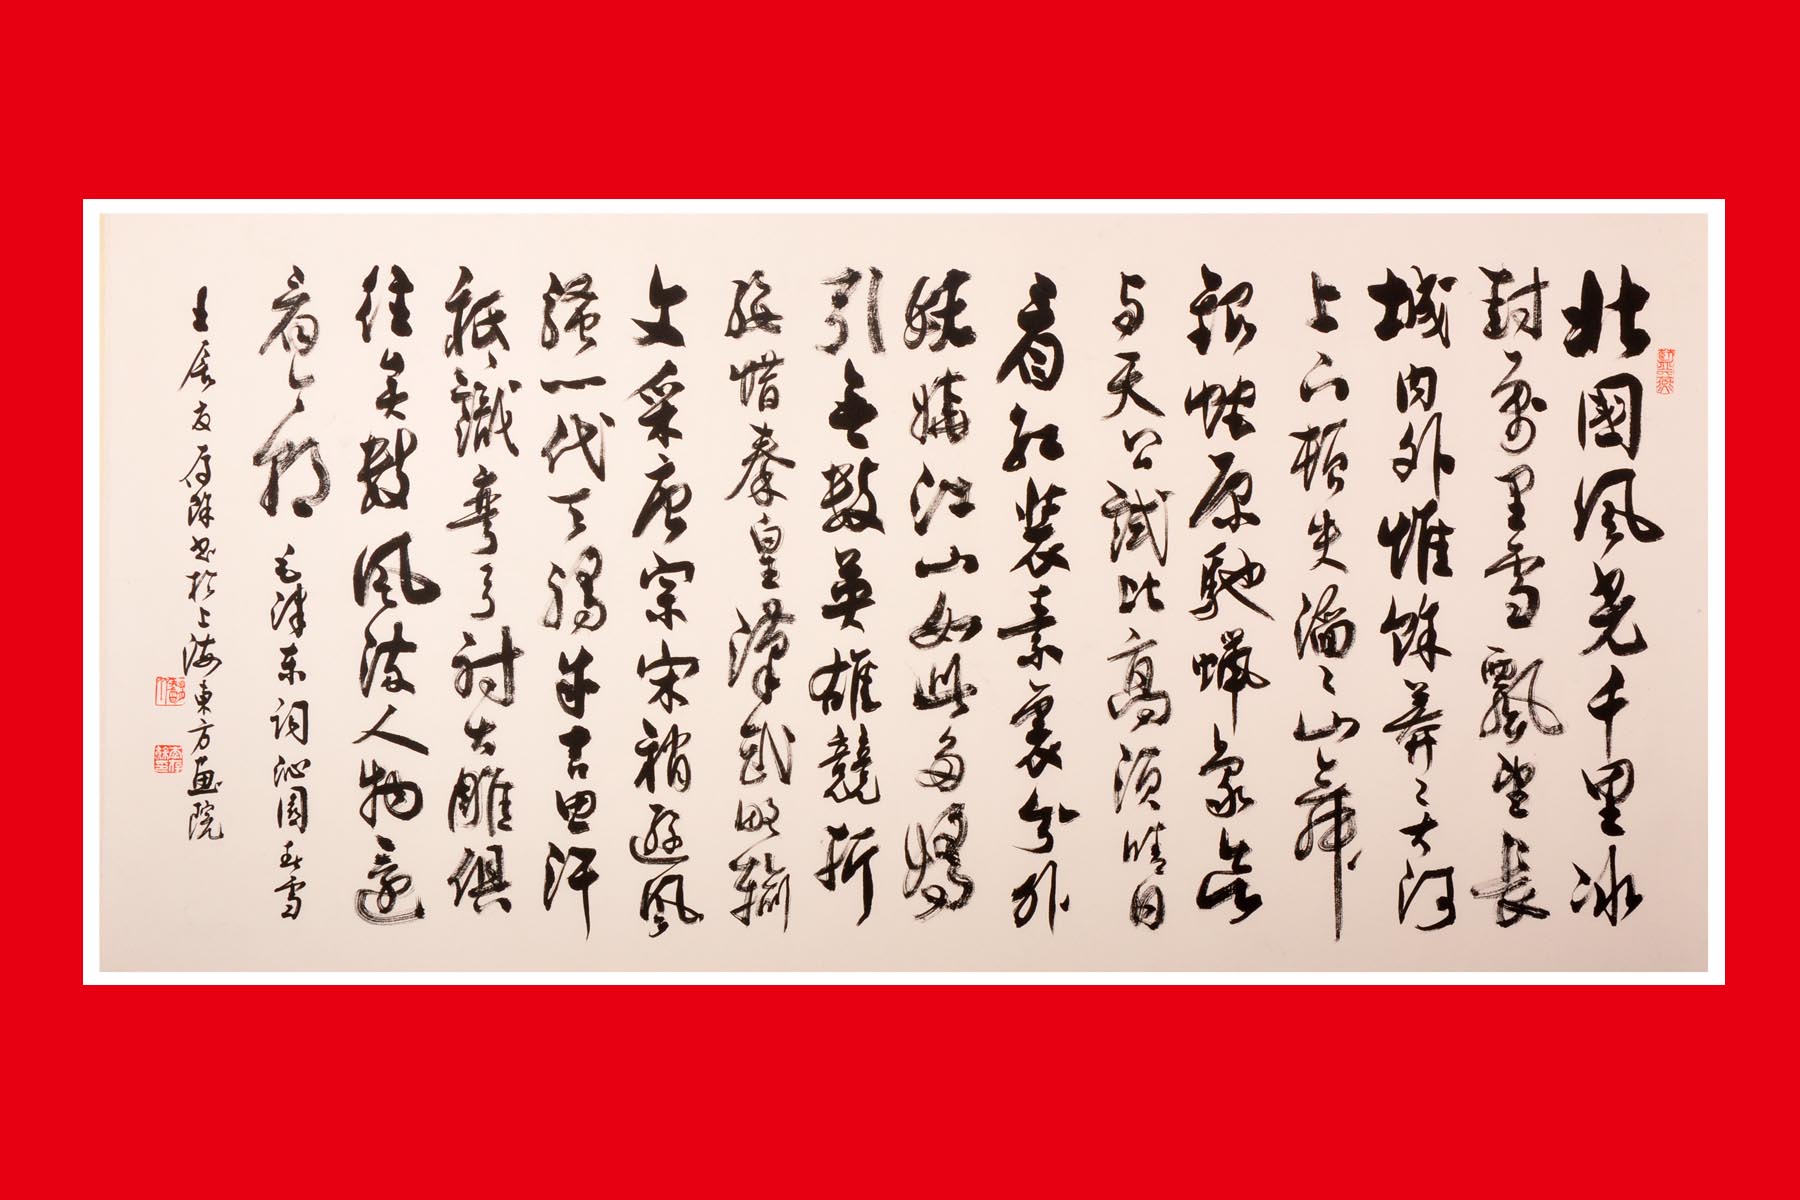 北國風光千里冰
封萬里雪飄望長
城内外惟餘莽〻大河
上下頓失滔〻山舞
銀蛇原馳蠟象欲
与天公試比高須晴日
看紅裝素裹分外
妖嬈江山如此多嬌
引無數英雄競折
腰惜秦皇漢武略輸
文采唐宗宋稍遜風
騷一代天驕成吉思汗
祇識彎弓射大雕俱
往矣數風流人物還
看今朝 毛澤東詞沁園春雪
壬辰 书於上海東方画院